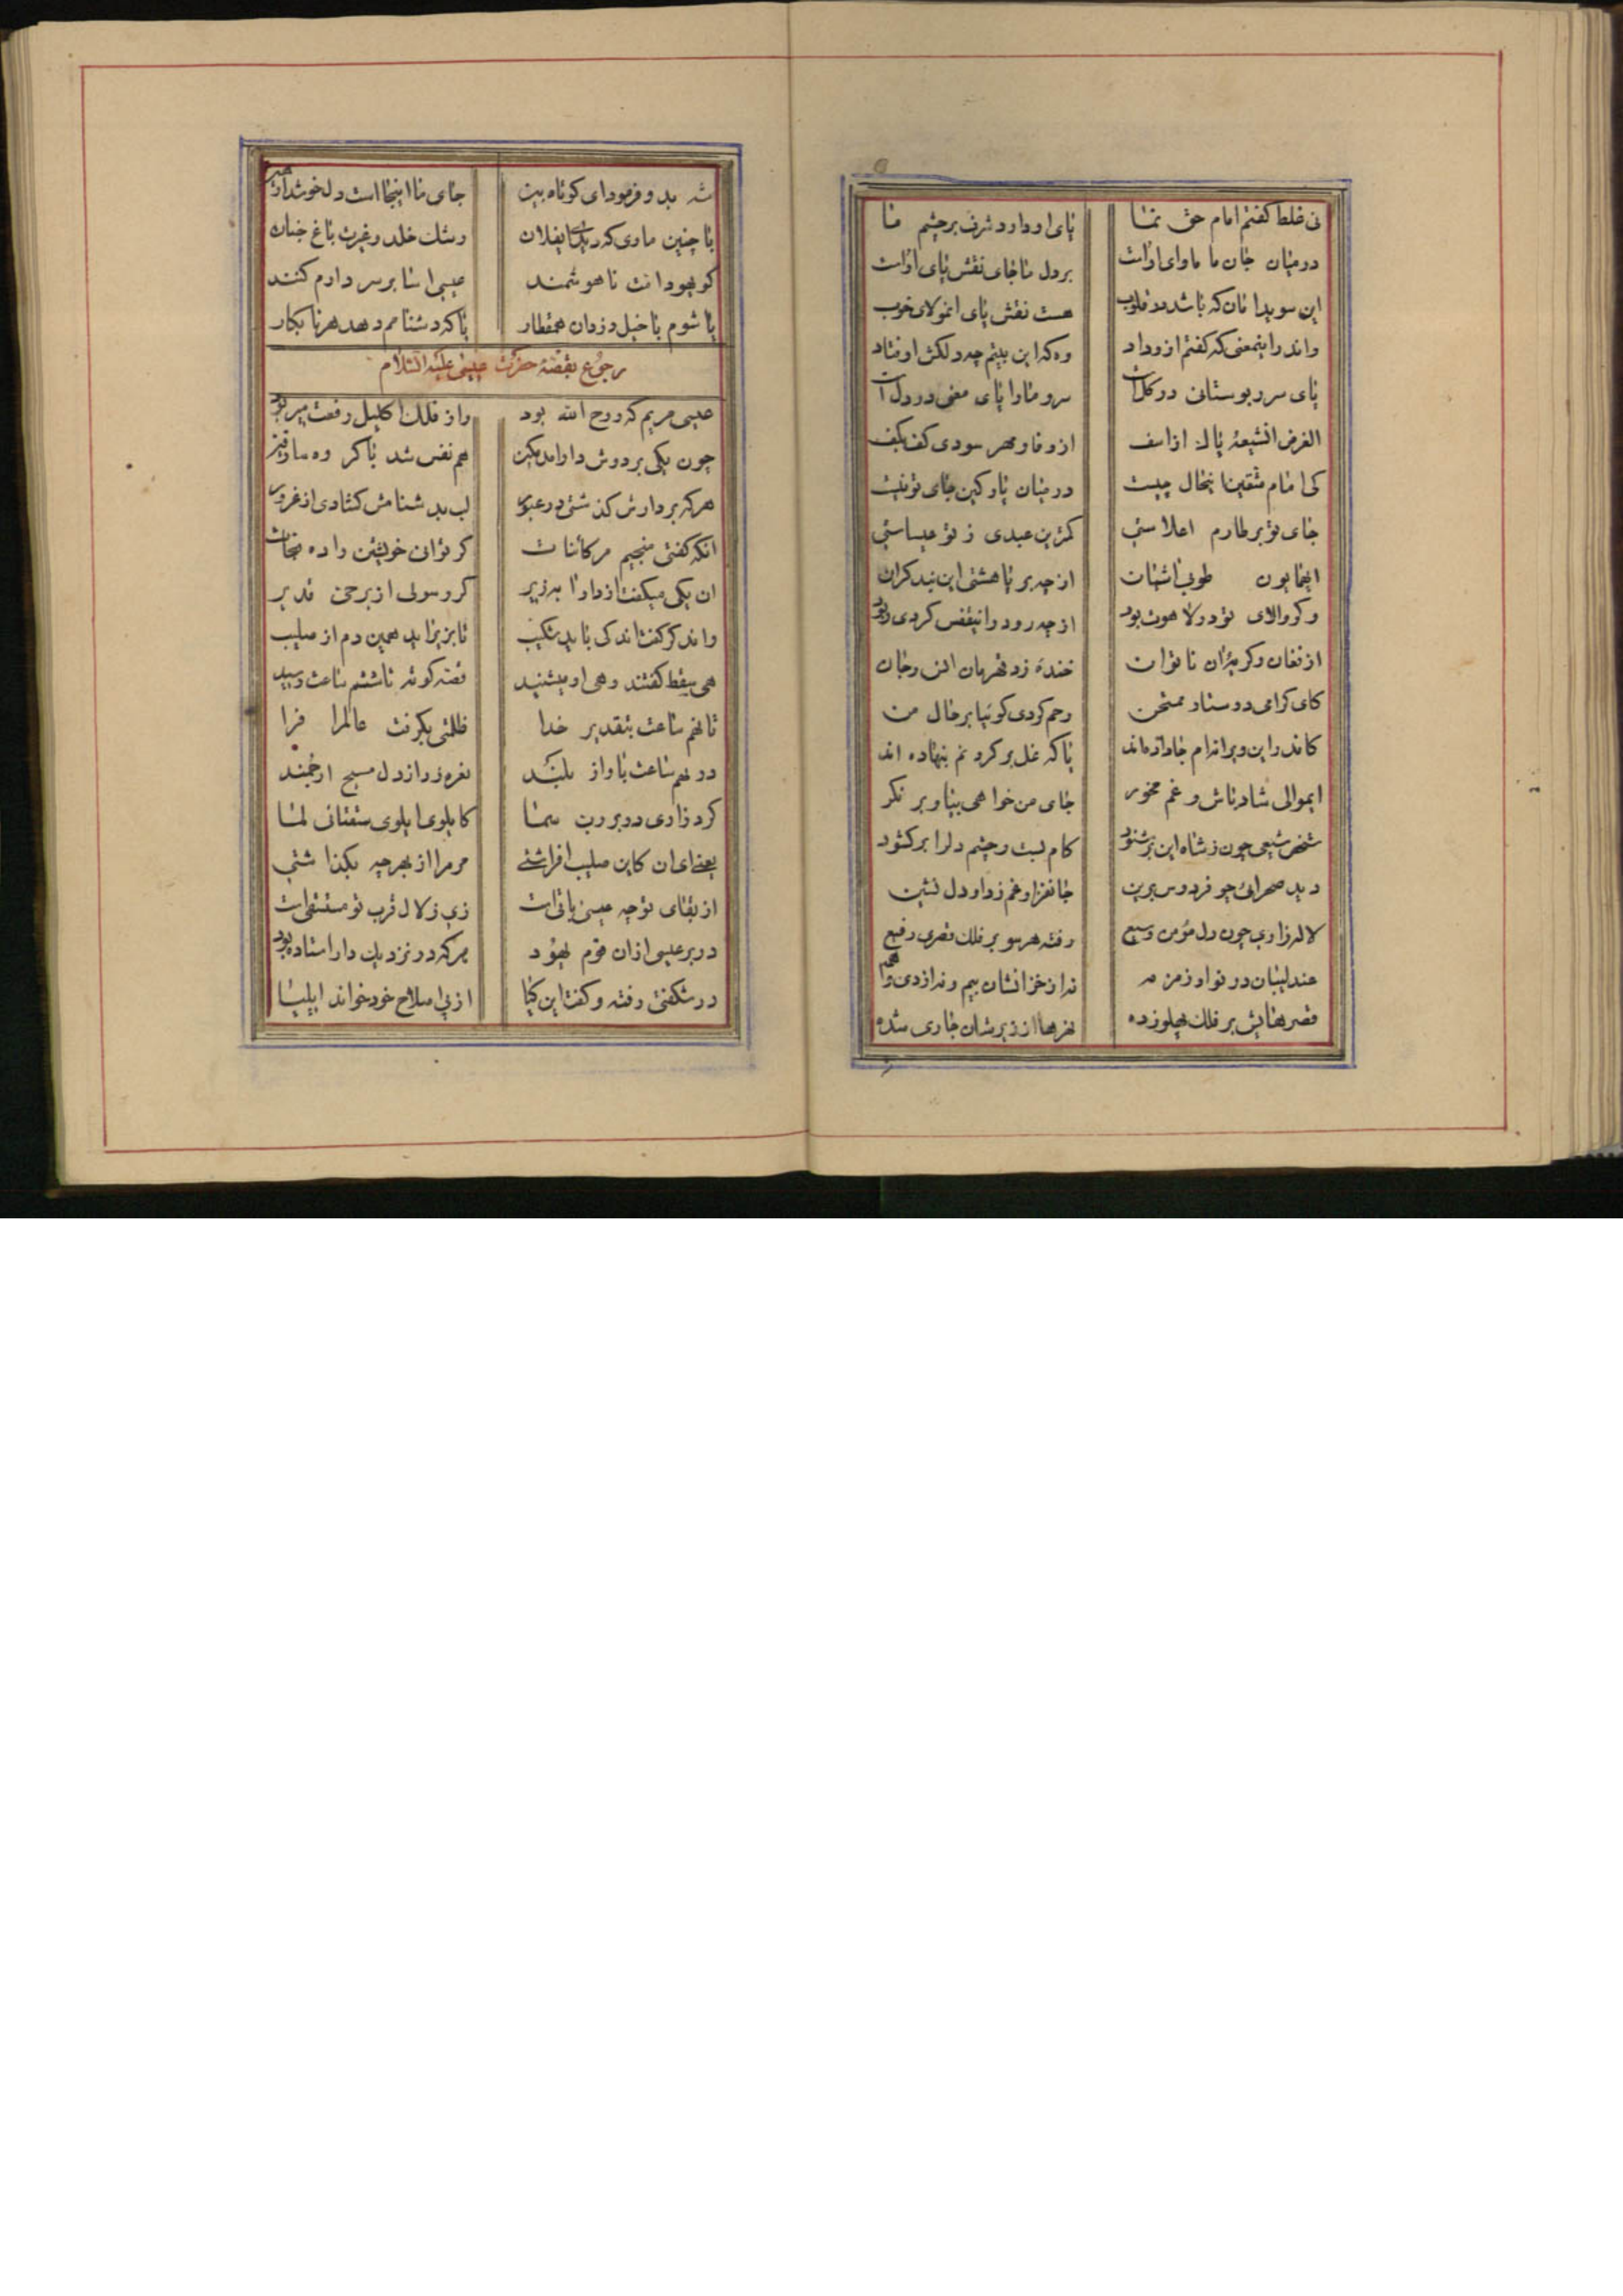 نی غلط کفتم امام حق نما پای او دارد شرف بر چشم ما
در میان جان ما ماوای اوست بر دل ما جای نقش پای اوست
این سویدا مان که باشد در قلوب هست نقش پای انمولای خوب
واندر اینمعنی که کفتم از وداد وه که این بیتم چه دلکش اوفتاد
پای سرو بوستانی در کلست سرو ما را پای معنی در دلست
الغرض انشیعهٔ پاک از اسف از وفا و مهر سودی کف بکف
کی امام متقین اینحال چیست در میان پارکین جای تو نیست
جای تو بر طارم اعلاستی کمترین عبدی ز تو عیساستی
ایهمایون طوبی اشیان از چه بر پا هشتی این بند کران
وکر والای تو در لاهوت بود از چه رو در اینقفس کردی
از فغان و کریهٔ ان ناتوان خنده زد قهرمان انس و جان
کای کرامی دوستار ممتحن رحم کردی کوئیا بر حال من
کاندر این ویرانه ام جا داده اند یا که غل بر کردنم بنهاده اند
ایموالی شاد باش و غم مخور جای من خواهی بیا و بر نکر
شخص شیعی چون ز شاه این بر شنود کام بست و چشم دل را بر کشود
دید صحرائی چو فردوس برین جانفزا و غم زدا و دل نشین
لاله زاری چون دل مؤمن وسیع رفته هر سو بر فلک قصری رفیع
عندلیبان در نوا و زمزمه نه از خزانشان بیم و نه از دی واهمه
قصرهایش بر فلک پهلو زده نهرها از زیرشان جاری شده
شه بدو فرمود ای کوتاه بین جای ما اینجا است دل خوشدار
با چنین ماوی که دیدت ایفلان رشک خلد و غیرت باغ جنان
کو یهودانت ناهوشمند عیسی اسا بر سر دارم کنند
یا شوم با خیل دزدان همقطار یا که دشنامم دهد هر نابکار
رجوع بقصهٔ حضرت عیسی علیه السلام
عیسی مریم که روح الله بود واز فلک اکلیل رفعت میربود
چون یکی بر دوش دار امد مکین هم نفس شد با کروه سارقین
هر که بر دارش کذشتی در عبور لب بدشنامش کشادی از غرور
انکه کفتی منجیم مر کائنات کر توان خویشتن را ده نجات
ان یکی میکفت از دار ا بزیر کر رسولی از بر حی قدیر
واند کر کفتا اندکی باید شکیب تا بزیر اید همین دم از صلیب
هی سقط کفتند و هی او میشنید قصه کوته تا ششم ساعت رسید
تا نهم ساعت بتقدیر خدا ظلمتی بکرفت عالم را فرا
در نهم ساعت باواز بلند نعره زد از دل مسیح ارجمند
کرد زاری در بر رب سما کایلوی ایلوی سبقتانی لما
یعنی ای ان کاین صلیب افراشتی مر مرا از بهر چه بکذاشتی
از بقای تو چه عیسی باقی است زی زلال قرب تو مستسقی است
در بر عیسی از ان قوم یهود هر که در نزدیک دار استاده بود
در شکفتی رفته و کفت این کیا از پی اصلاح خود خواند ایلیا